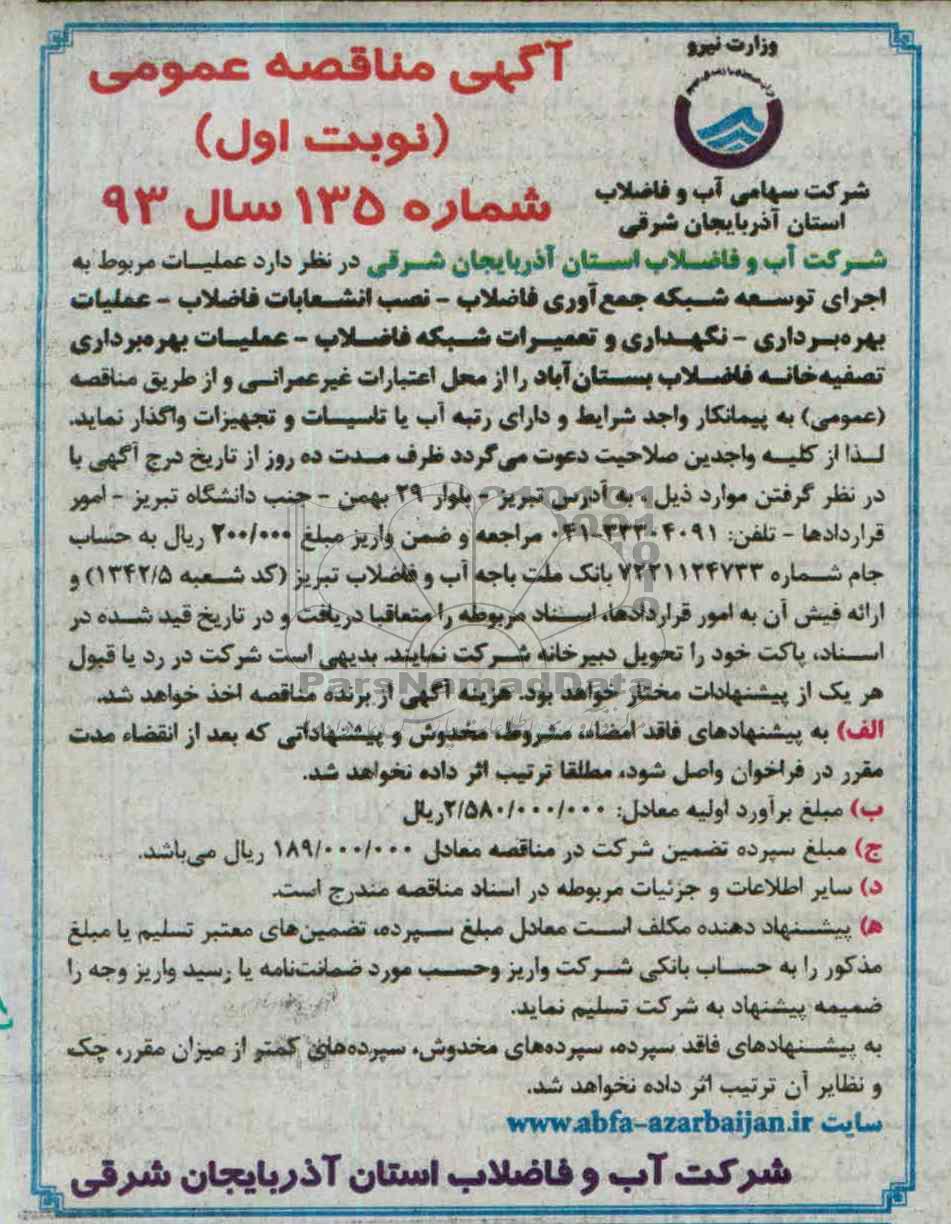 وزارت نیرو
شرکت سهامی آب و فاضلاب
استان آذربایجان شرقی
آگهی مناقصه عمومی
(نوبت اول)
شماره ۱۳۵ سال ۹۳
شرکت آب و فاضلاب استان آذربایجان شرقی در نظر دارد عملیات مربوط به
اجرای توسعه شبکه جمع‌آوری فاضلاب - نصب انشعابات فاضلاب - عملیات
بهره‌برداری - نگهداری و تعمیرات شبکه فاضلاب - عملیات بهره‌برداری
تصفیه‌خانه فاضلاب بستان‌آباد را از محل اعتبارات غیرعمرانی و از طریق مناقصه
(عمومی) به پیمانکار واجد شرایط و دارای رتبه آب یا تاسیسات و تجهیزات واگذار نماید.
لذا از کلیه واجدین صلاحیت دعوت می‌گردد ظرف مدت ده روز از تاریخ درج آگهی با
در نظر گرفتن موارد ذیل، به آدرس تبریز - بلوار ۲۹ بهمن - جنب دانشگاه تبریز - امور
قراردادها - تلفن: ۳۳۳۰۴۰۹۱-۰۴۱ مراجعه و ضمن واریز مبلغ ۲۰۰/۰۰۰ ریال به حساب
جام شماره ۷۲۲۱۱۲۴۷۳۳ بانک ملت باجه آب و فاضلاب تبریز (کد شعبه ۱۳۴۲/۵) و
ارائه فیش آن به امور قراردادها، اسناد مربوطه را متعاقبا دریافت و در تاریخ قید شده در
اسناد، پاکت خود را تحویل دبیرخانه شرکت نمایند. بدیهی است شرکت در رد یا قبول
هر یک از پیشنهادات مختار خواهد بود. هزینه آگهی از برنده مناقصه اخذ خواهد شد.
ParsNamadData
الف) به پیشنهادهای فاقد امضاء، مشروط، مخدوش و پیشنهاداتی که بعد از انقضاء مدت
مقرر در فراخوان واصل شود، مطلقا ترتیب اثر داده نخواهد شد.
ب) مبلغ برآورد اولیه معادل: ۲/۵۸۰/۰۰۰/۰۰۰ریال
ج) مبلغ سپرده تضمین شرکت در مناقصه معادل ۱۸۹/۰۰۰/۰۰۰ ریال می‌باشد.
د) سایر اطلاعات و جزئیات مربوطه در اسناد مناقصه مندرج است.
ه) پیشنهاد دهنده مکلف است معادل مبلغ سپرده، تضمین‌های معتبر تسلیم یا مبلغ
مذکور را به حساب بانکی شرکت واریز وحسب مورد ضمانت‌نامه یا رسید واریز وجه را
ضمیمه پیشنهاد به شرکت تسلیم نماید.
به پیشنهادهای فاقد سپرده، سپرده‌های مخدوش، سپرده‌های کمتر از میزان مقرر، چک
و نظایر آن ترتیب اثر داده نخواهد شد.
سایت www.abfa-azarbaijan.ir
شرکت آب و فاضلاب استان آذربایجان شرقی